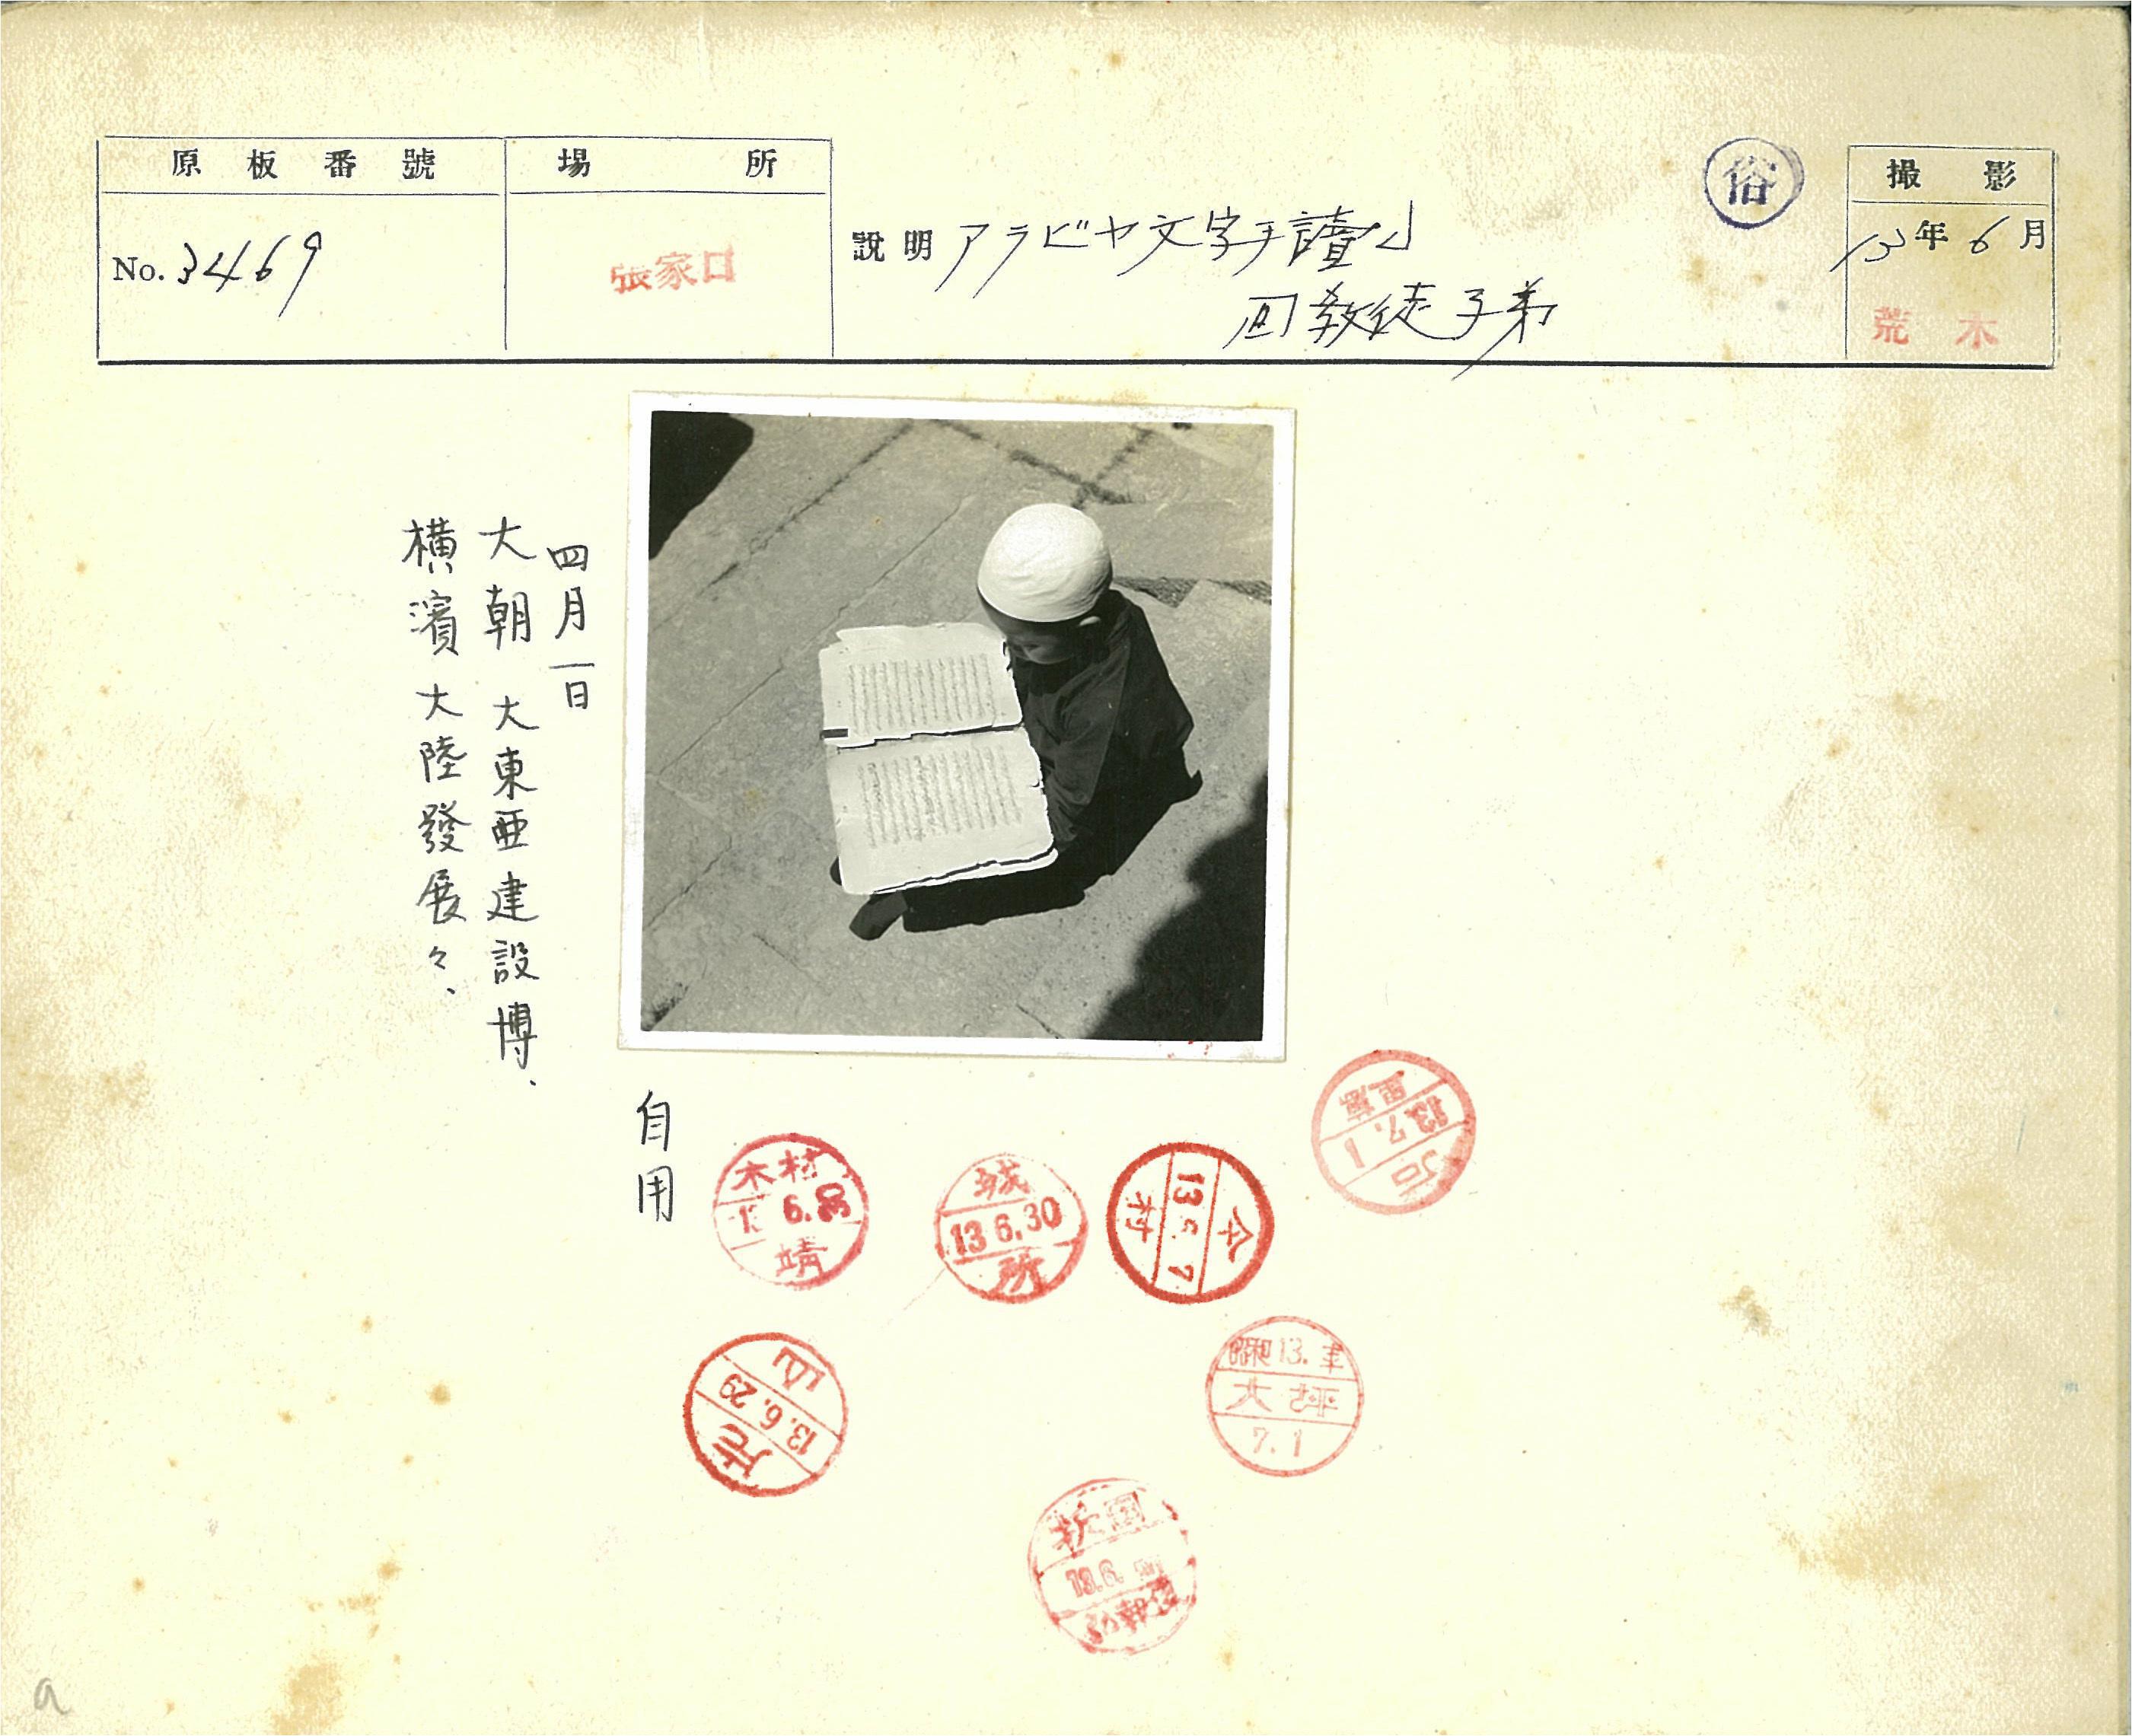 原板番號
場所
No. 3469
張家口
說明 アラビヤ文字ヲ讀ム
回教徒子弟
俗
撮影
13年6月
荒木
四月一日
大朝 大東亜建設博、
横濱大陸發展々、
自用
木村
6.30
靖
城
13 6.30
所
13
村
13.7.1
石
片
13.6.29
山
昭和13.年
大坪
7.1
13.6.
a